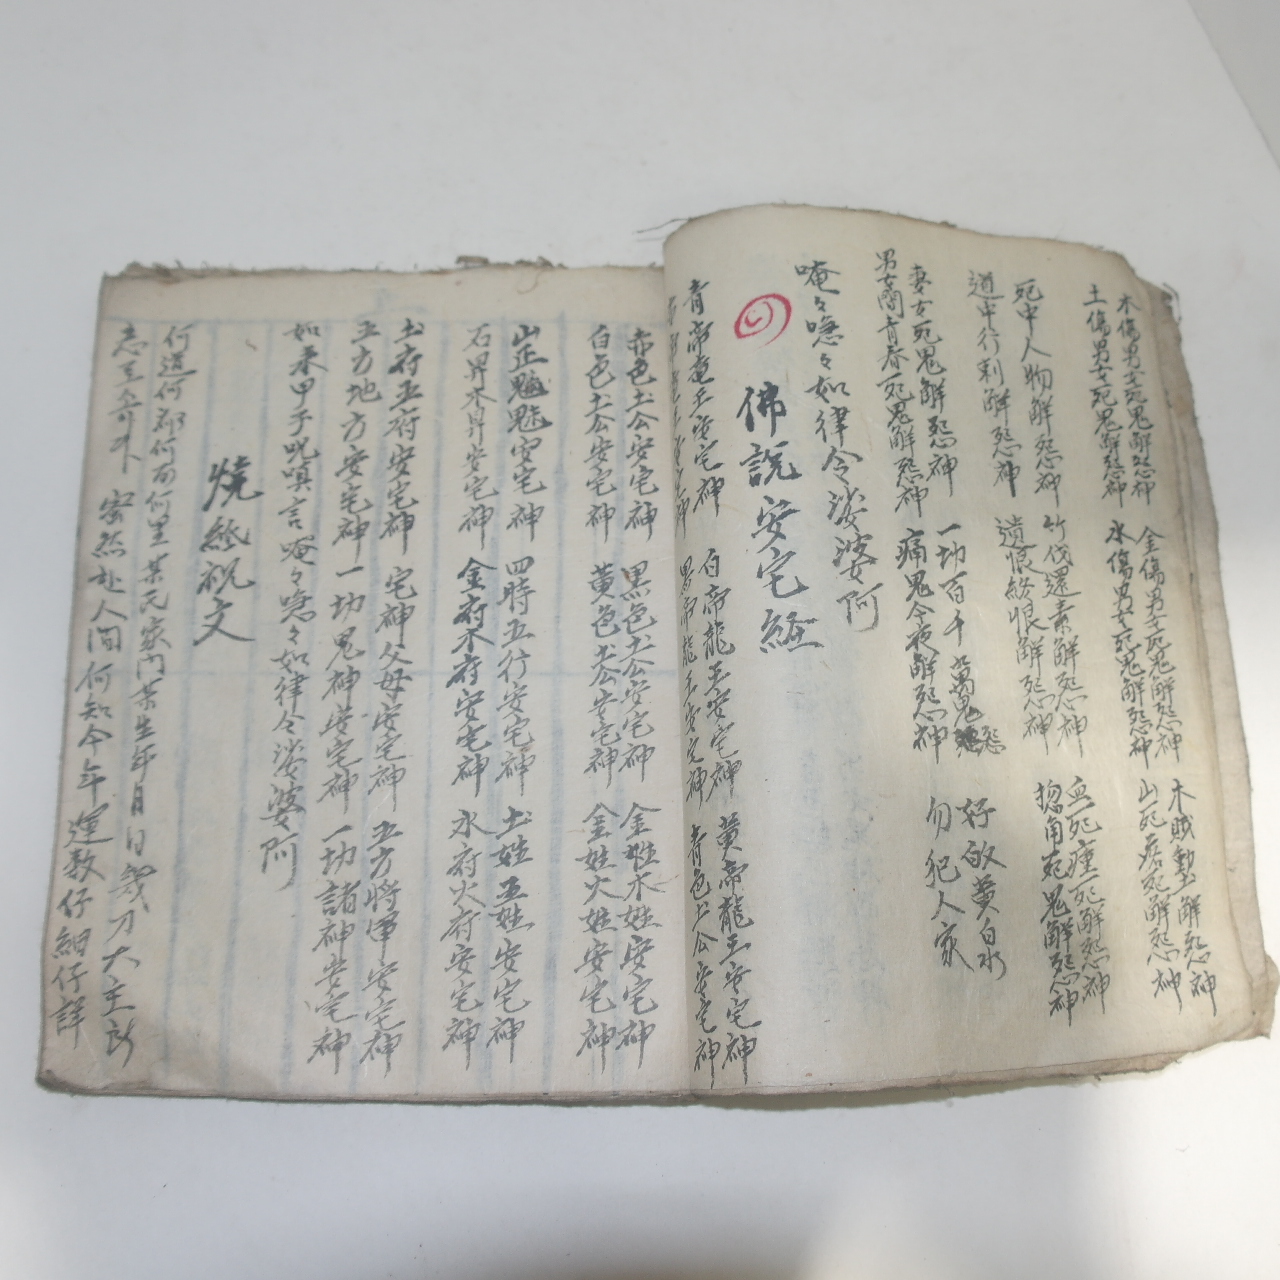 木傷男女死鬼解怨神 金傷男女死鬼解怨神 木賊墊解怨神
土傷男女死鬼解怨神 水傷男女死鬼解怨神 山死病死解怨神
死中人物解怨神 竹伐還素解怨神 血死瘇死解怨神
道中行刺解怨神 遺恨終恨解怨神 揔角死鬼解怨神
妻女死鬼解怨神 一切百千萬鬼 好飮黃白水
男女蘭靑春死鬼解怨神 痛鬼今夜解怨神 勿犯人家
唵々喼々如律令娑婆阿
佛說安宅経
靑帝龍王安宅神 白帝龍王安宅神 黃帝龍王安宅神
黑帝龍王安宅神 靑色土公安宅神
赤色土公安宅神 黑色土公安宅神 金姓木姓安宅神
白色土公安宅神 黃色土公安宅神 金姓火姓安宅神
山正魑魅安宅神 四時五行安宅神 土姓五姓安宅神
石界木界安宅神 金府木府安宅神 水府火府安宅神
土府五府安宅神 宅神父母安宅神 五方將軍安宅神
五方地方安宅神 一切鬼神安宅神 一切諸神安宅神
如來甲子呪嗔言唵々喼々如律令娑婆阿
燒経祝文
何道何郡何面何里某氏家門某生年月日幾刀大主
人間何知今年運数仔細仔詳